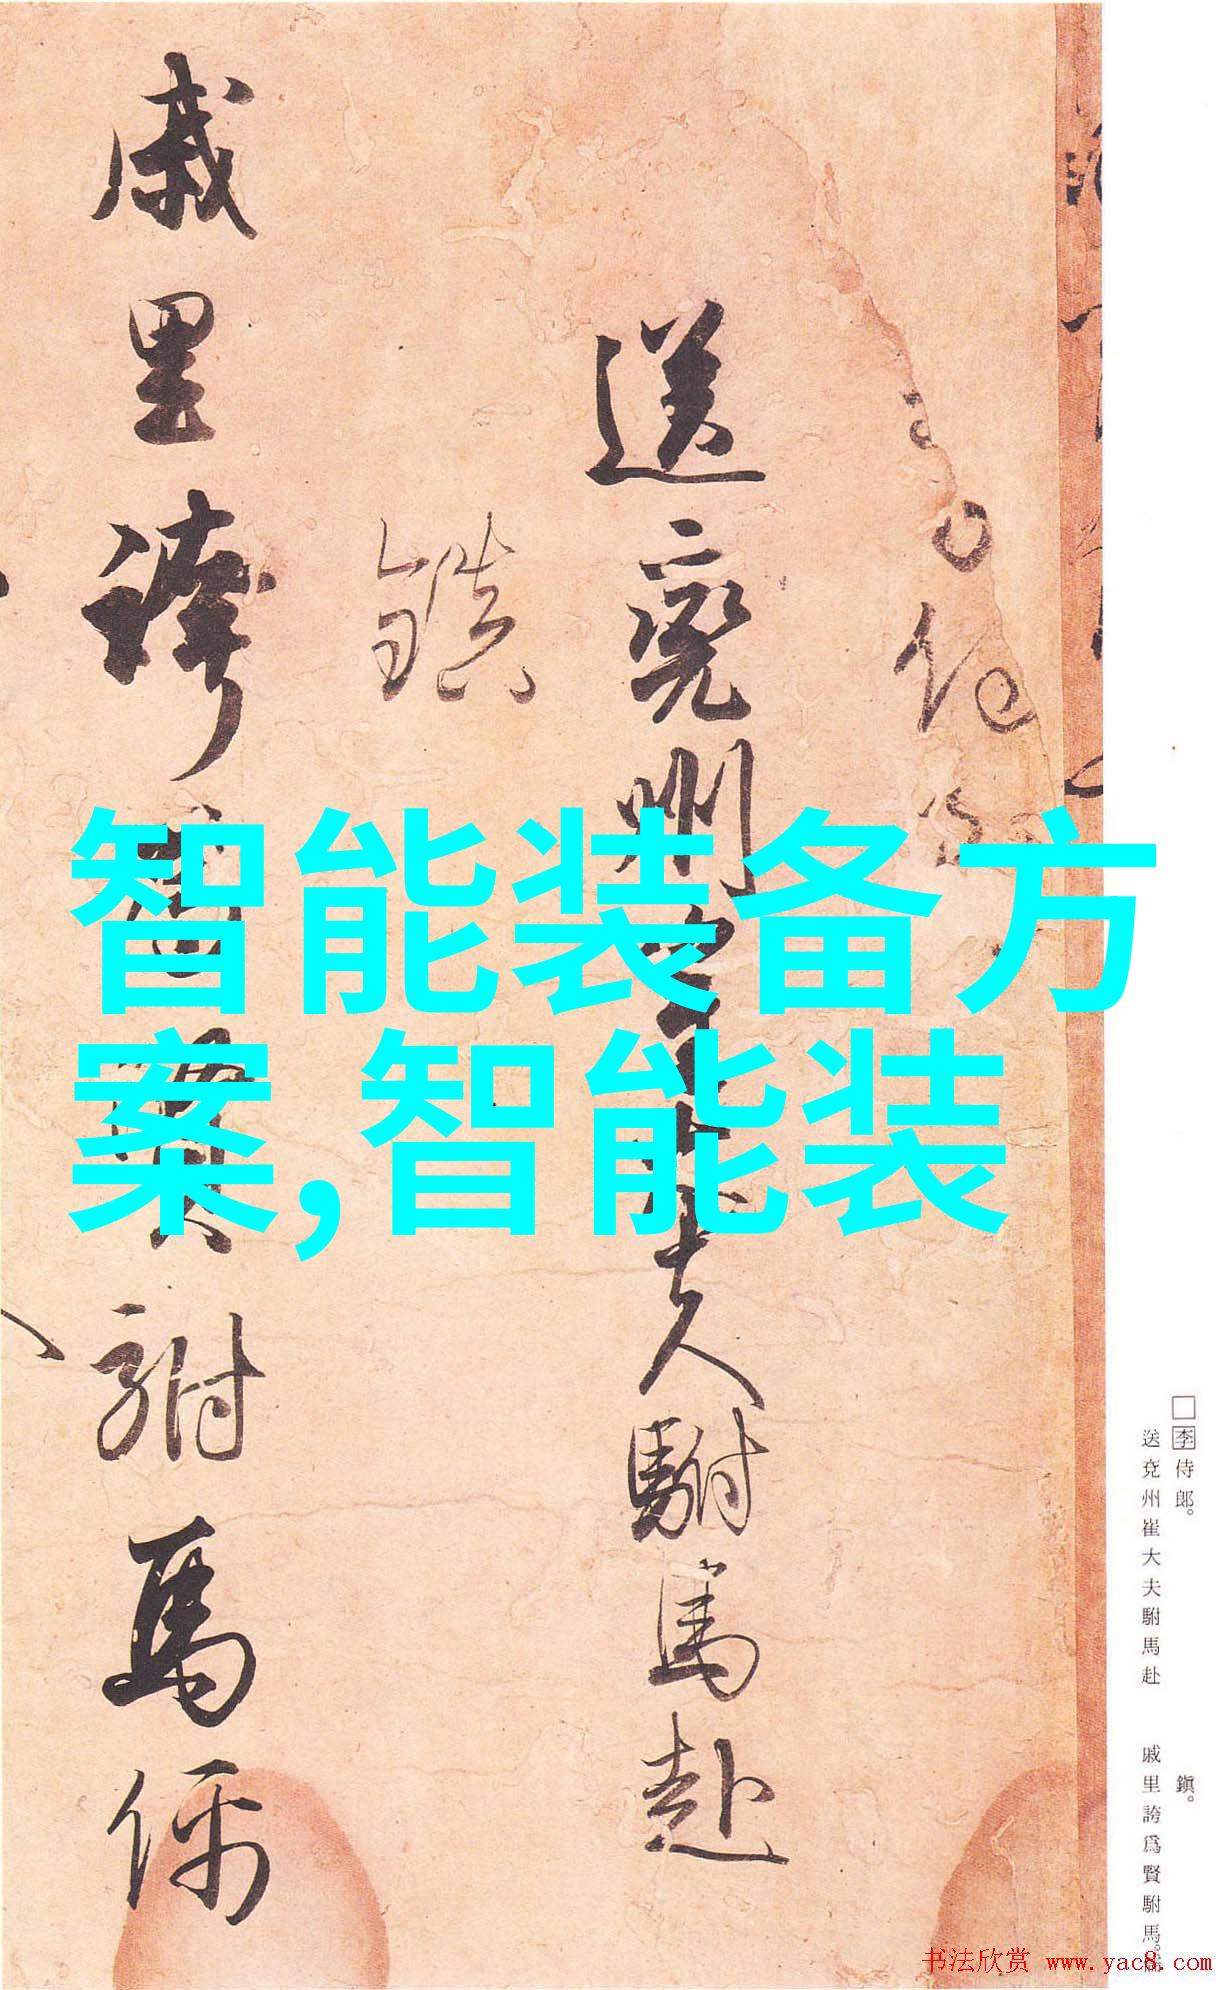 李侍郎。
送兗州崔大夫駙馬赴
鎮。
戚里誇爲賢駙馬。
送兗州崔大夫駙馬赴
鎮
戚里誇為賢駙馬儒
智能装备方
案,智能装
书法欣赏 www.yac8.com